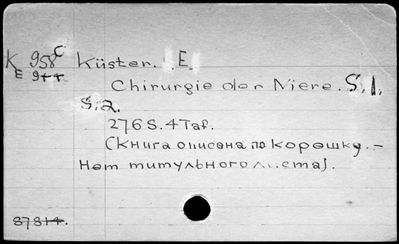 K 958 C Küster. E.
E 9++
Chirurgie der Niere. S.l.
S.a.
276 S. 4 Taf.
(Книга описана по корешку. –
Нет титульного листа).
37814.